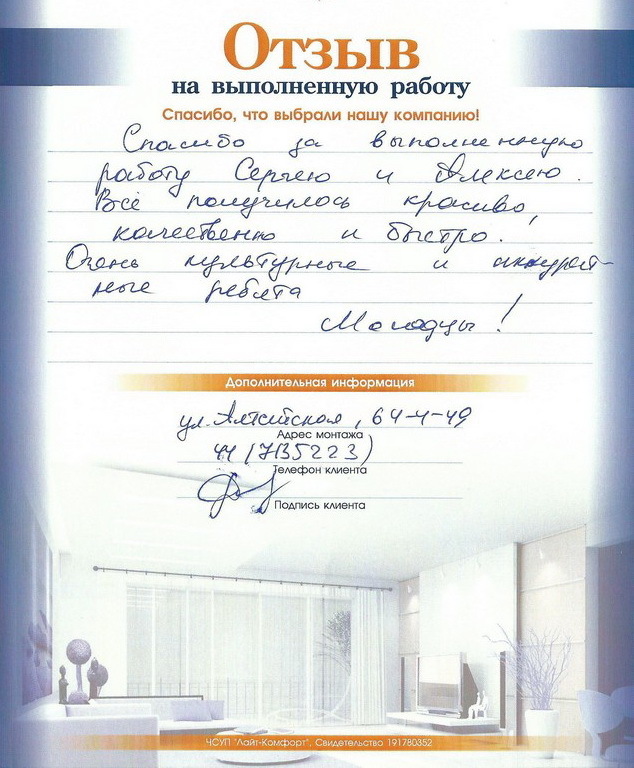 Отзыв
на выполненную работу
Спасибо, что выбрали нашу компанию!
Спасибо за выполненную
работу Сергею и Алексею.
Всё получилось красиво,
качественно и быстро.
Очень культурные и аккурат-
ные ребята
Молодцы!
Дополнительная информация
ул. Алтайская, 64-4-49
Адрес монтажа
44 (7135223)
Телефон клиента
Подпись клиента
ЧСУП "Лайт-Комфорт". Свидетельство 191780352